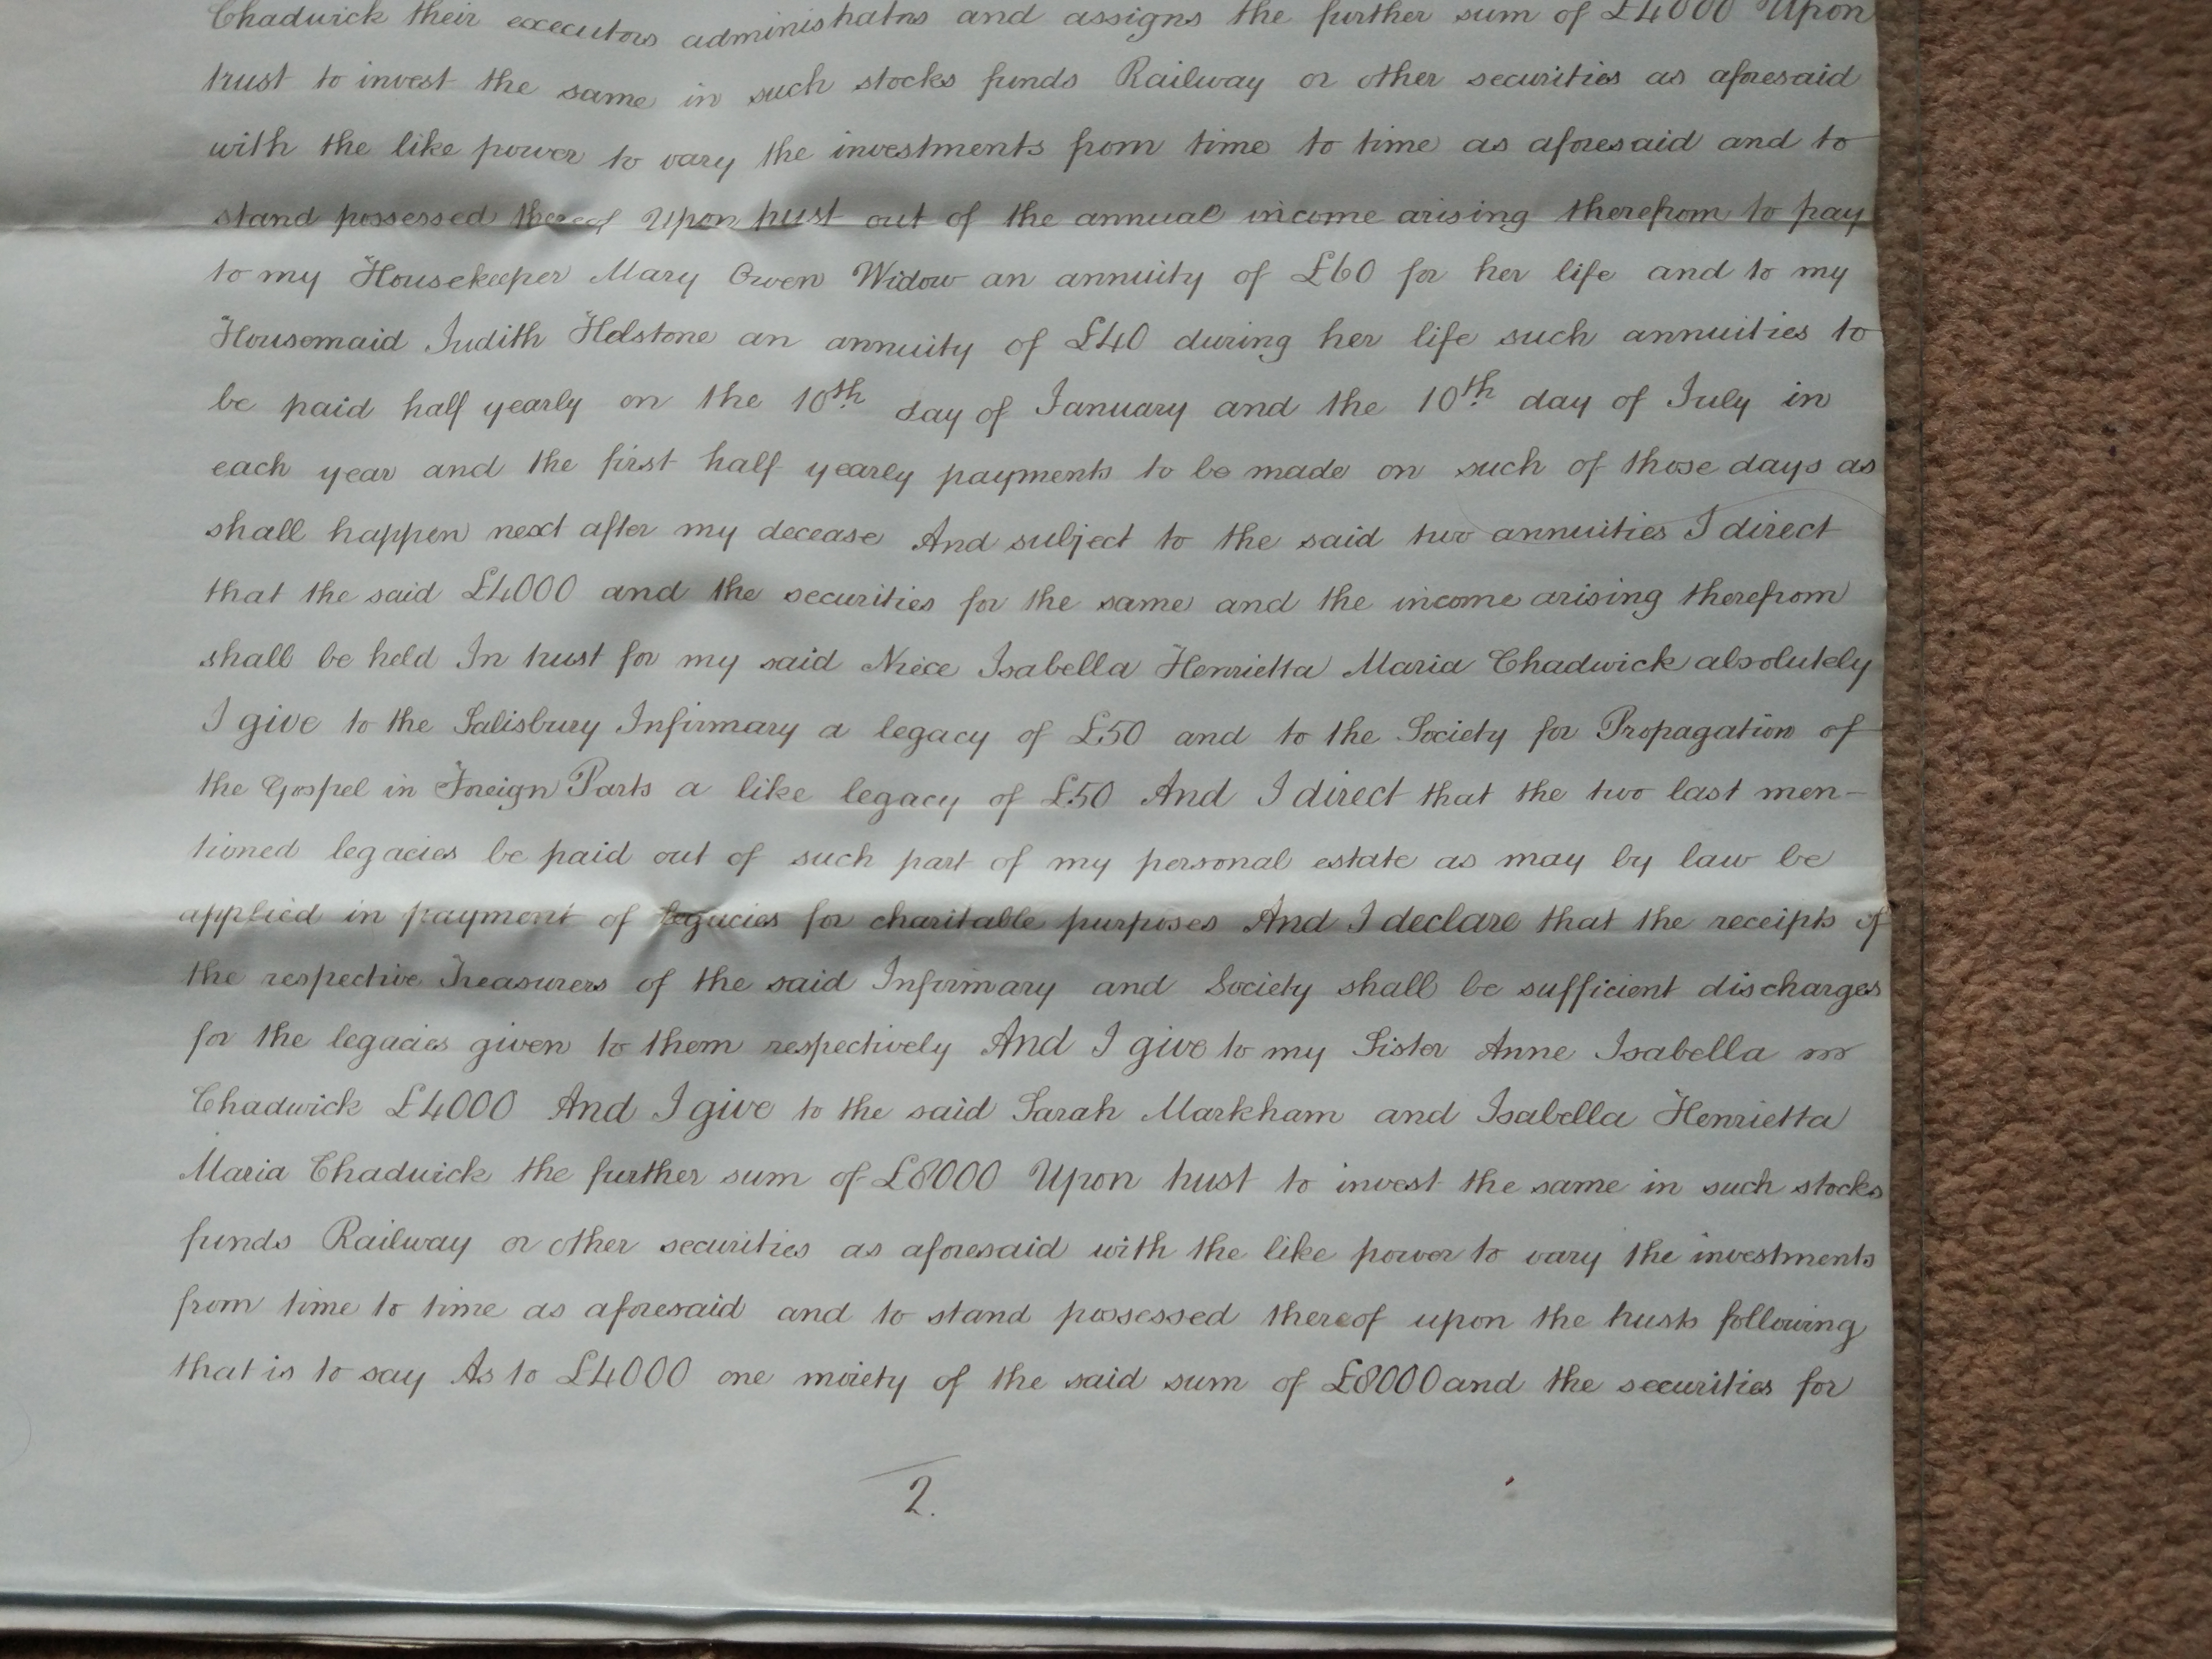 Chadwick their executors administrators and assigns the further sum of £4000 Upon
trust to invest the same in such stocks funds Railway or other securities as aforesaid
with the like power to vary the investments from time to time as aforesaid and to
stand possessed thereof Upon trust out of the annual income arising therefrom to pay
to my Housekeeper Mary Owen Widow an annuity of £60 for her life and to my
Housemaid Judith Holstone an annuity of £40 during her life such annuities to
be paid half yearly on the 10th day of January and the 10th day of July in
each year and the first half yearly payments to be made on such of those days as
shall happen next after my decease And subject to the said two annuities I direct
that the said £4000 and the securities for the same and the income arising therefrom
shall be held In trust for my said Niece Isabella Henrietta Maria Chadwick absolutely
I give to the Salisbury Infirmary a legacy of £50 and to the Society for Propagation of
the Gospel in Foreign Parts a like legacy of £50 And I direct that the two last men-
tioned legacies be paid out of such part of my personal estate as may by law be
applied in payment of legacies for charitable purposes And I declare that the receipts of
the respective Treasurers of the said Infirmary and Society shall be sufficient discharges
for the legacies given to them respectively And I give to my Sister Anne Isabella
Chadwick £4000 And I give to the said Sarah Markham and Isabella Henrietta
Maria Chadwick the further sum of £8000 Upon trust to invest the same in such stocks
funds Railway or other securities as aforesaid with the like power to vary the investments
from time to time as aforesaid and to stand possessed thereof upon the trusts following
that is to say As to £4000 one moiety of the said sum of £8000 and the securities for
2.